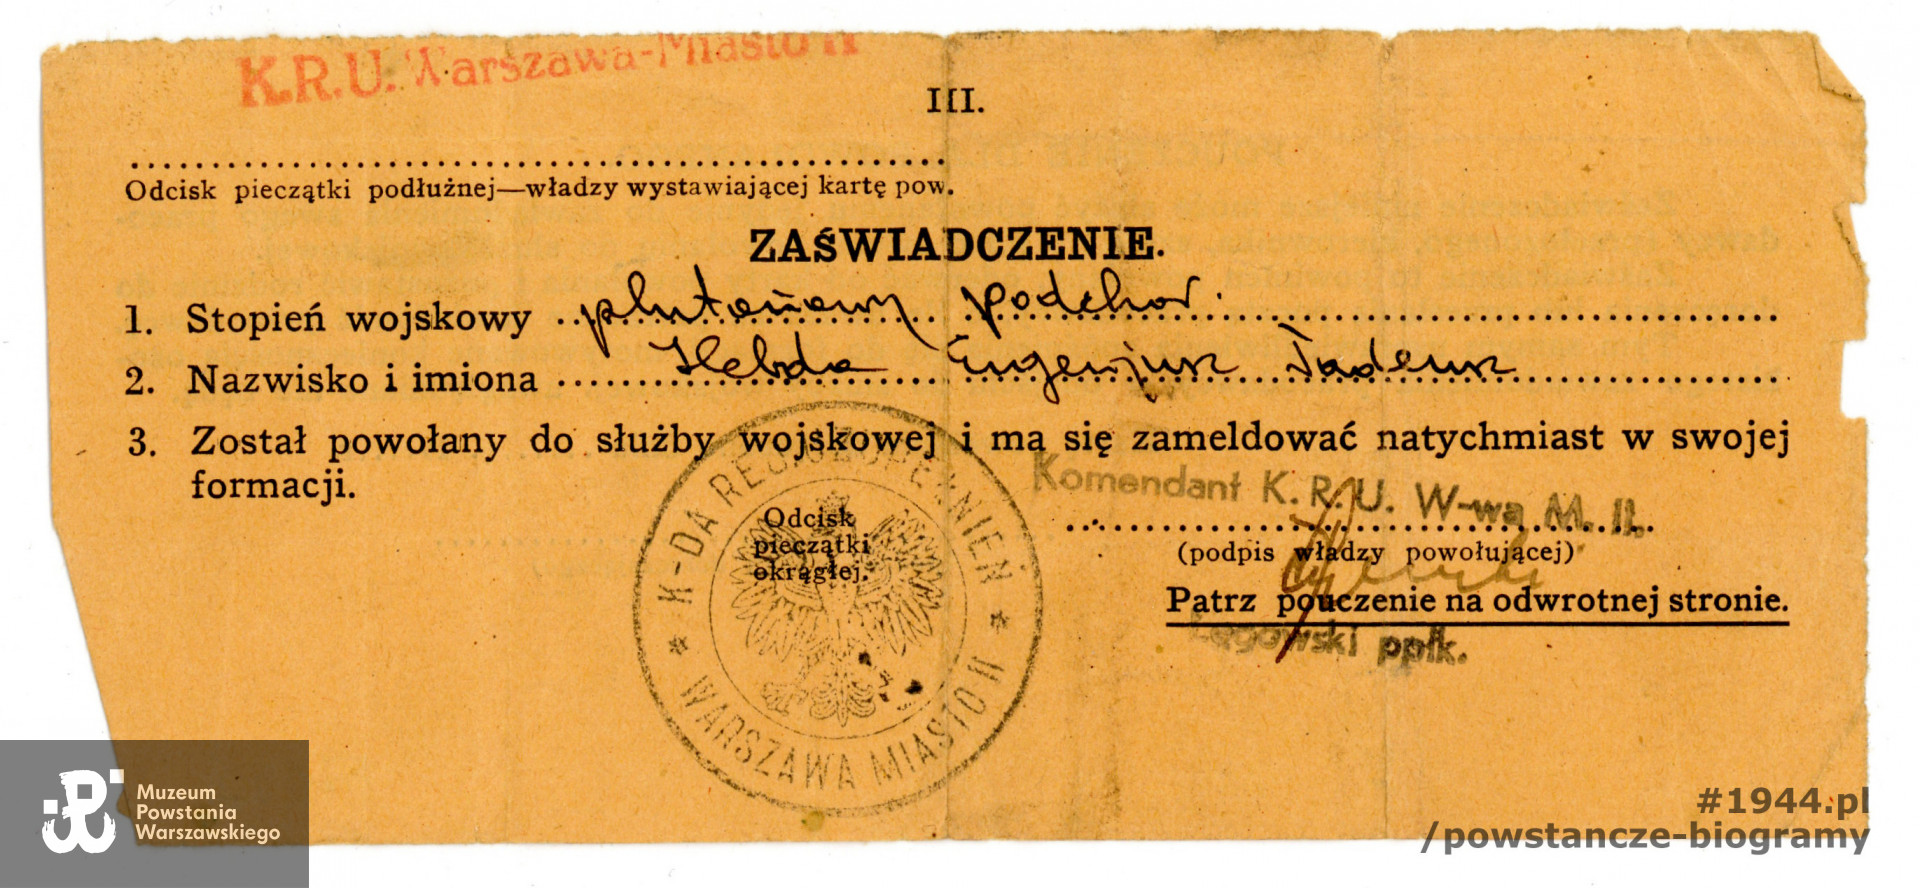 K.R.U. Warszawa-Miasto II
III.
Odcisk pieczątki podłużnej—władzy wystawiającej kartę pow.
ZAŚWIADCZENIE.
1. Stopień wojskowy plutonowy podchor.
2. Nazwisko i imiona Hebda Eugeniusz Tadeusz
3. Został powołany do służby wojskowej i ma się zameldować natychmiast w swojej
formacji.
Komendant K. R. U. W-wa M. II.
Odcisk
pieczątki
okrągłej.
K-DA REJ. UZUPEŁNIEŃ
* WARSZAWA MIASTO II *
(podpis władzy powołującej)
Patrz pouczenie na odwrotnej stronie.
Łęgowski ppłk.
Muzeum
Powstania
Warszawskiego
#1944.pl
/powstancze-biogramy